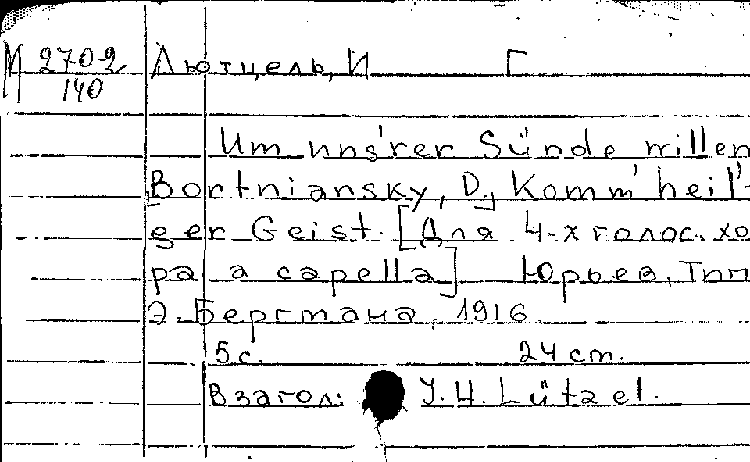 М 2702 Лютцель, И Г
140
Um uns'rer Sünde willen
Bortniansky, D., Komm' heil'-
ger Geist. [Для 4-х голос. хо
ра a capella] Юрьев, Тип
Э. Бергмана, 1916
5 с. 24 cm.
В загол: J. H. Lützel.